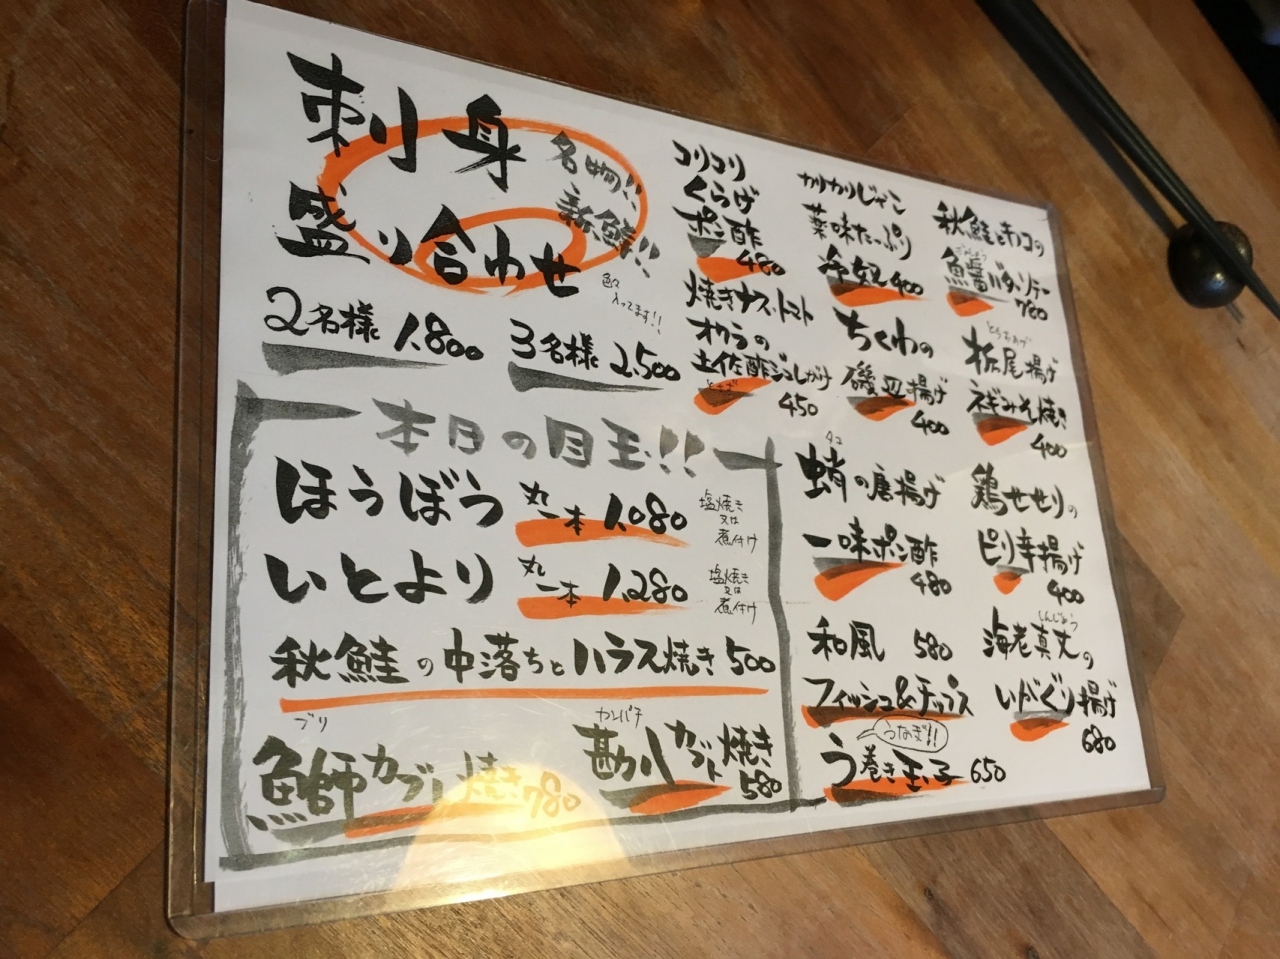 刺身
名物!!
新鮮!!
盛り合わせ
色々
入ってます!!
2名様 1,800
3名様 2,500
本日の目玉!!
ほうぼう 丸一本 1,080
塩焼き
又は
煮付け
いとより 丸一本 1,280
塩焼き
又は
煮付け
秋鮭の中落ちとハラス焼き 500
ブリ
鰤カブト焼き 780
カンパチ
勘八カブト焼き
580
コリコリ
くらげ
ポン酢
480
焼きナス・トマト
オクラの
土佐酢ジュレがけ
とさず
450
カリカリじゃこ
薬味たっぷり
冷奴 400
ちくわの
磯辺揚げ
400
秋鮭とキノコの
ぎょしょう
魚醤バターソテー
780
とちおあげ
栃尾揚げ
ネギみそ焼き
400
タコ
蛸の唐揚げ
一味ポン酢
480
鶏せせりの
ピリ辛揚げ
480
和風 580
フィッシュ&チップス
うなぎ!!
う巻き玉子 650
しんじょう
海老真丈の
いがぐり揚げ
680